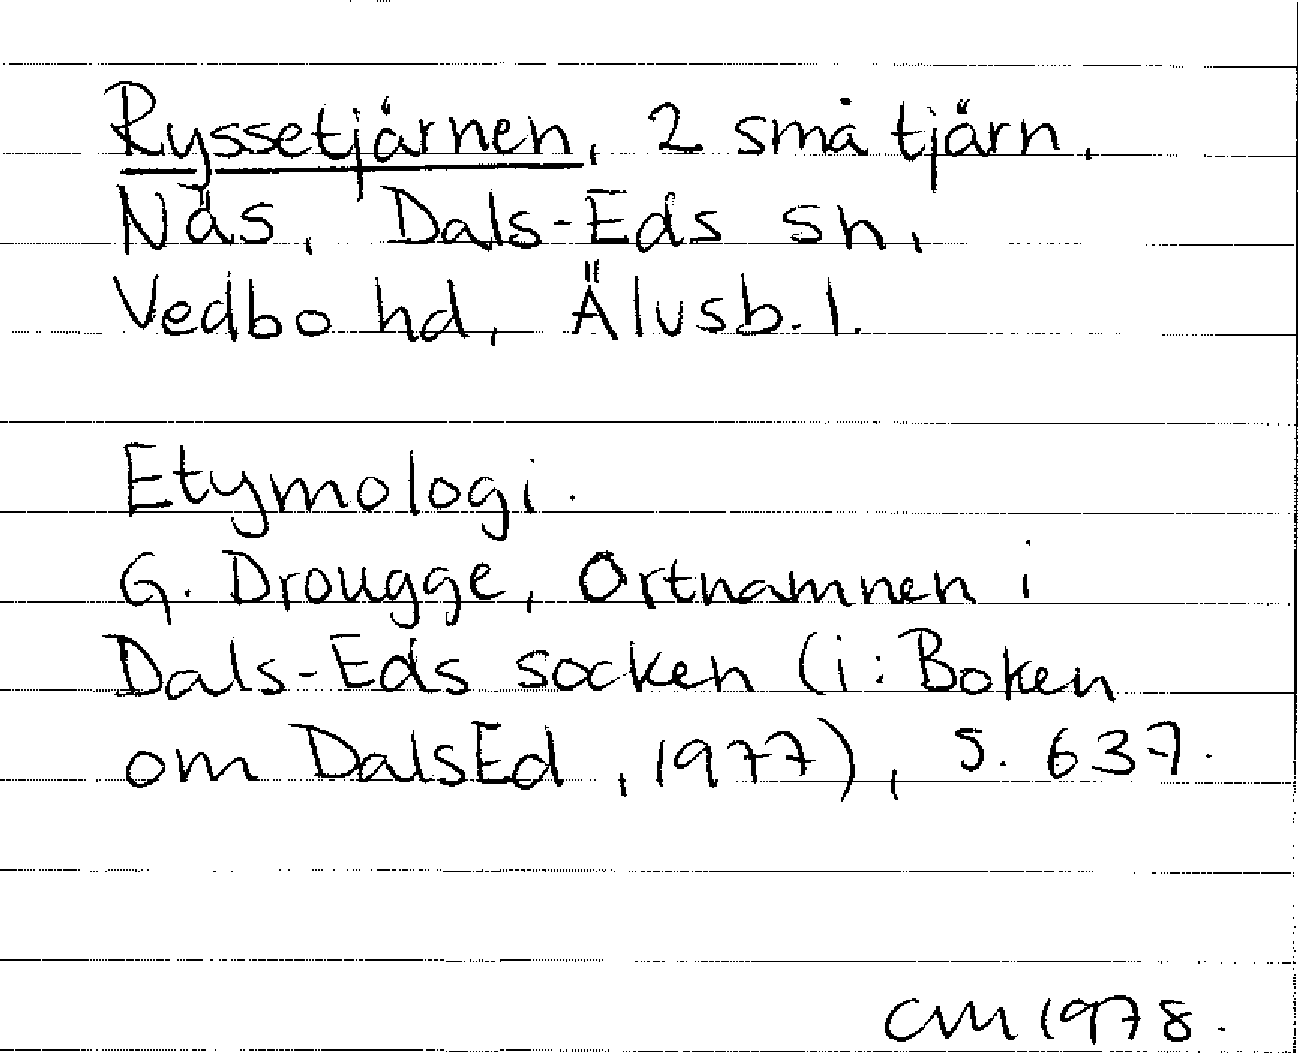 Ryssetjärnen, 2 små tjärn,
Näs, Dals-Eds sn,
Vedbo hd, Älvsb. l.
Etymologi.
G. Drougge, Ortnamnen i
Dals-Eds socken (i: Boken
om DalsEd, 1977), s. 637.
CM 1978.